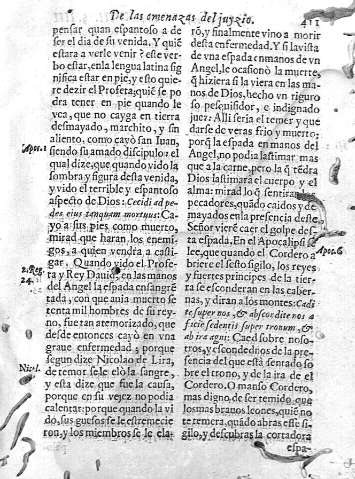 De las amenazas del juyzio.
411
pensar quan espantoso a de
ser el dia de su venida. Y quiē
estara a verle venir? este ver-
bo estar, en la lengua latina sig-
nifica estar en pie, y esto quie-
re dezir el Profeta; quiē se po
dra tener en pie quando le
vea, que no cayga en tierra
desmayado, marchito, y sin
aliento, como cayò san Iuan,
siendo su amado discipulo: el
qual dize, que quando vido la
figura desta venida,
y vido el terrible y espantoso
aspecto de Dios: Cecidi ad pe-
des eius tanquam mortuus: Ca-
yo a sus pies como muerto,
mirad que haran los enemi-
gos, a quien vendra a casti-
gar. Quando vido el Profe-
ta y Rey Dauid, en las manos
del Angel la espada ensangrē
tada, con que auia muerto se
tenta mil hombres de su rey-
no, fue tan atemorizado, que
desde entonces cayò en vna
graue enfermedad; porque
segun dize Nicolao de Lira,
de temor se le elò la sangre,
y esta dize que fue la causa,
porque en su vejez no podia
calentar: porque quando la vi
do, sus guesos se le estremecie
ron, y los miembros se le ela-
Apoc.1
2. Reg.
24.
Nic. l.
rō, y finalmente vino a morir
desta enfermedad. Y si la vista
de vna espada en manos de vn
Angel, le ocasionò la muerte,
q̄ hiziera si la viera en las ma-
nos de Dios, hecho vn riguro
so pesquisidor, e indignado
juez? Alli seria el temer y que
darse de veras frio y muerto;
porq̄ la espada en manos del
Angel, no podia lastimar mas
que a la carne, pero la q̄ tēdrà
Dios lastimarà el cuerpo y el
alma: mirad lo q̄ sentirā
pecadores, quādo caidos y de
mayados en la presencia deste
Señor vierē caer el golpe des-
ta espada. En el Apocalipsi se
lee, que quando el Cordero a
briere el sesto sigilo, los reyes
y fuertes principes de la tier-
ra se esconderan en las caber-
nas, y diran a los montes: Cadi
te super nos, & abscondite nos a
facie sedentis super tronum, &
ab ira agni: Caed sobre noso-
tros, y escondednos de la pre-
sencia del que està sentado so
bre el trono, y de la ira de el
Cordero. O manso Cordero,
mas digno, de ser temido, que
los mas brauos leones, quiē no
te temera, quādo abras esse si-
gilo, y descubras la cortadora
espa-
Apoc.6